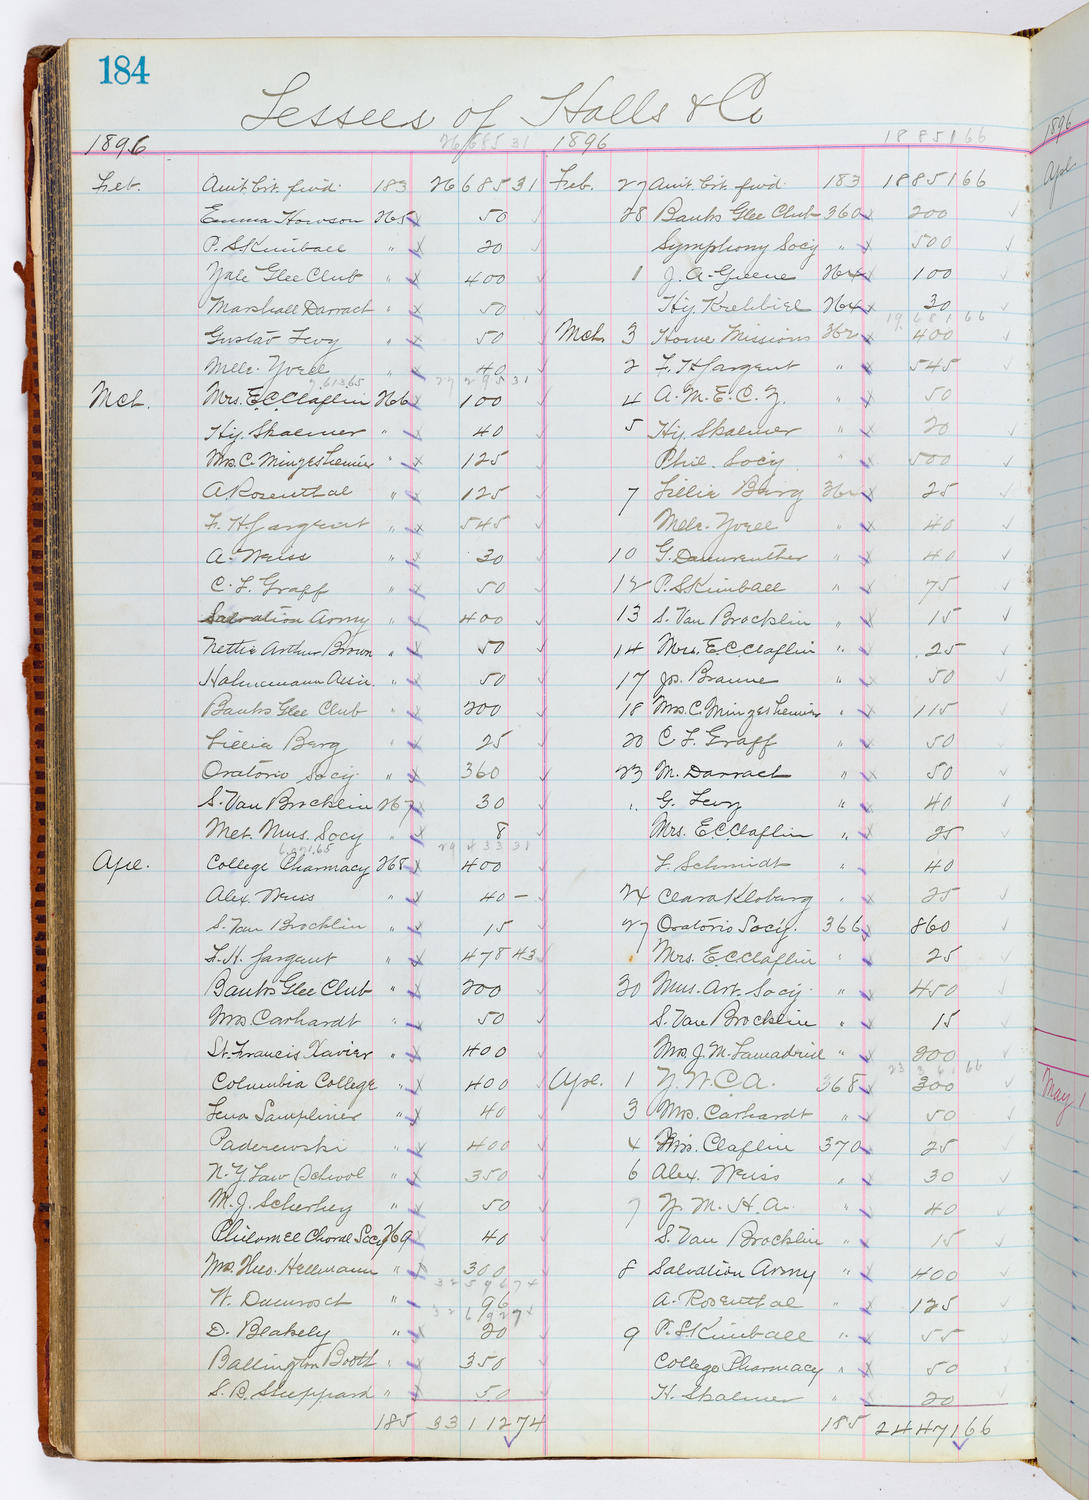 184
Lessees of Halls & Co
1896 26685 31
Feb. Amt. brt. fwd. 183 26685 31
Emma Howson 265 50
P. S Kimball " 20
Yale Glee Club " 400
Marshall Darrach " 50
Gustav Levy " 50
Melle. Yvell " 40
27295 31
Mch. Mrs. E. C. Claflin 266 100
Hy. Skalmer " 40
Mrs. C. Mingesheimer " 125
A Rosenthal " 125
F. H Sargent " 545
A. Weiss " 30
C. L. Graff " 50
Salvation Army " 400
Nettie Arthur Brown " 50
Hahnemann Assn. " 50
Banks Glee Club " 200
Lillia Berg " 25
Oratorio Socy. " 360
S. Van Brocklin 267 30
Met. Mus. Socy " 8
29433 31
Apl. College Pharmacy 268 400
Alex. Weiss " 40 –
S. Van Brocklin " 15
F. H. Sargent " 478 43
Banks Glee Club " 200
Mrs Carhardt " 50
St. Francis Xavier " 400
Columbia College " 400
Lena Sampliner " 40
Paderewski " 400
N. Y Law School " 350
M. J. Scherhey " 50
Philomel Choral Socy 269 40
Mrs. Theo. Hellmann " 300
32596 74
W. Damrosch " 96
32692 74
D. Blakely " 20
Ballington Booth " 350
S. B. Sheppard " 50
185 33112 74
1896 18851 66
Feb. 27 Amt. brt. fwd. 183 18851 66
28 Banks Glee Club 360 200
Symphony Socy " 500
1 J. A. Greene 264 100
Hy. Krehbiel 264 30
19681 66
Mch 3 Home Missions 362 400
2 F. H Sargent " 545
4 A. M. E. C. Z. " 50
5 Hy. Skalmer " 20
Phil. Socy " 500
7 Lillia Berg 364 25
Melle. Yvell " 40
10 G. Dannreuther " 40
12 P. S Kimball " 75
13 S. Van Brocklin " 15
14 Mrs. E. C. Claflin " 25
17 Jos. Braune " 50
18 Mrs C. Mingesheimer " 115
20 C L. Graff " 50
23 M. Darrach " 50
" G. Levy " 40
Mrs. E. C Claflin " 25
L. Schmidt " 40
24 Clara Kloberg " 25
27 Oratorio Socy. 366 860
Mrs. E. C. Claflin " 25
30 Mus. Art. Socy. " 450
S. Van Brocklin " 15
Mrs J. M. Lamadrid " 200
23361 66
Apl. 1 Y. W. C A. 368 300
3 Mrs. Carhardt " 50
4 Mrs. Claflin 370 25
6 Alex. Weiss " 30
7 Y. M. H. A. " 40
S. Van Brocklin " 15
8 Salvation Army " 400
A. Rosenthal " 125
9 P. S. Kimball " 55
College Pharmacy " 50
H. Skalmer " 20
185 24471 66
1896
Apl
May 1